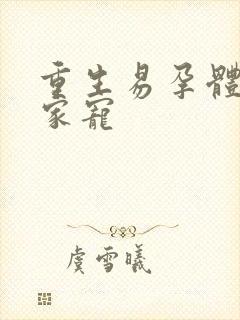 重生易孕體
家寵
虞雪曦